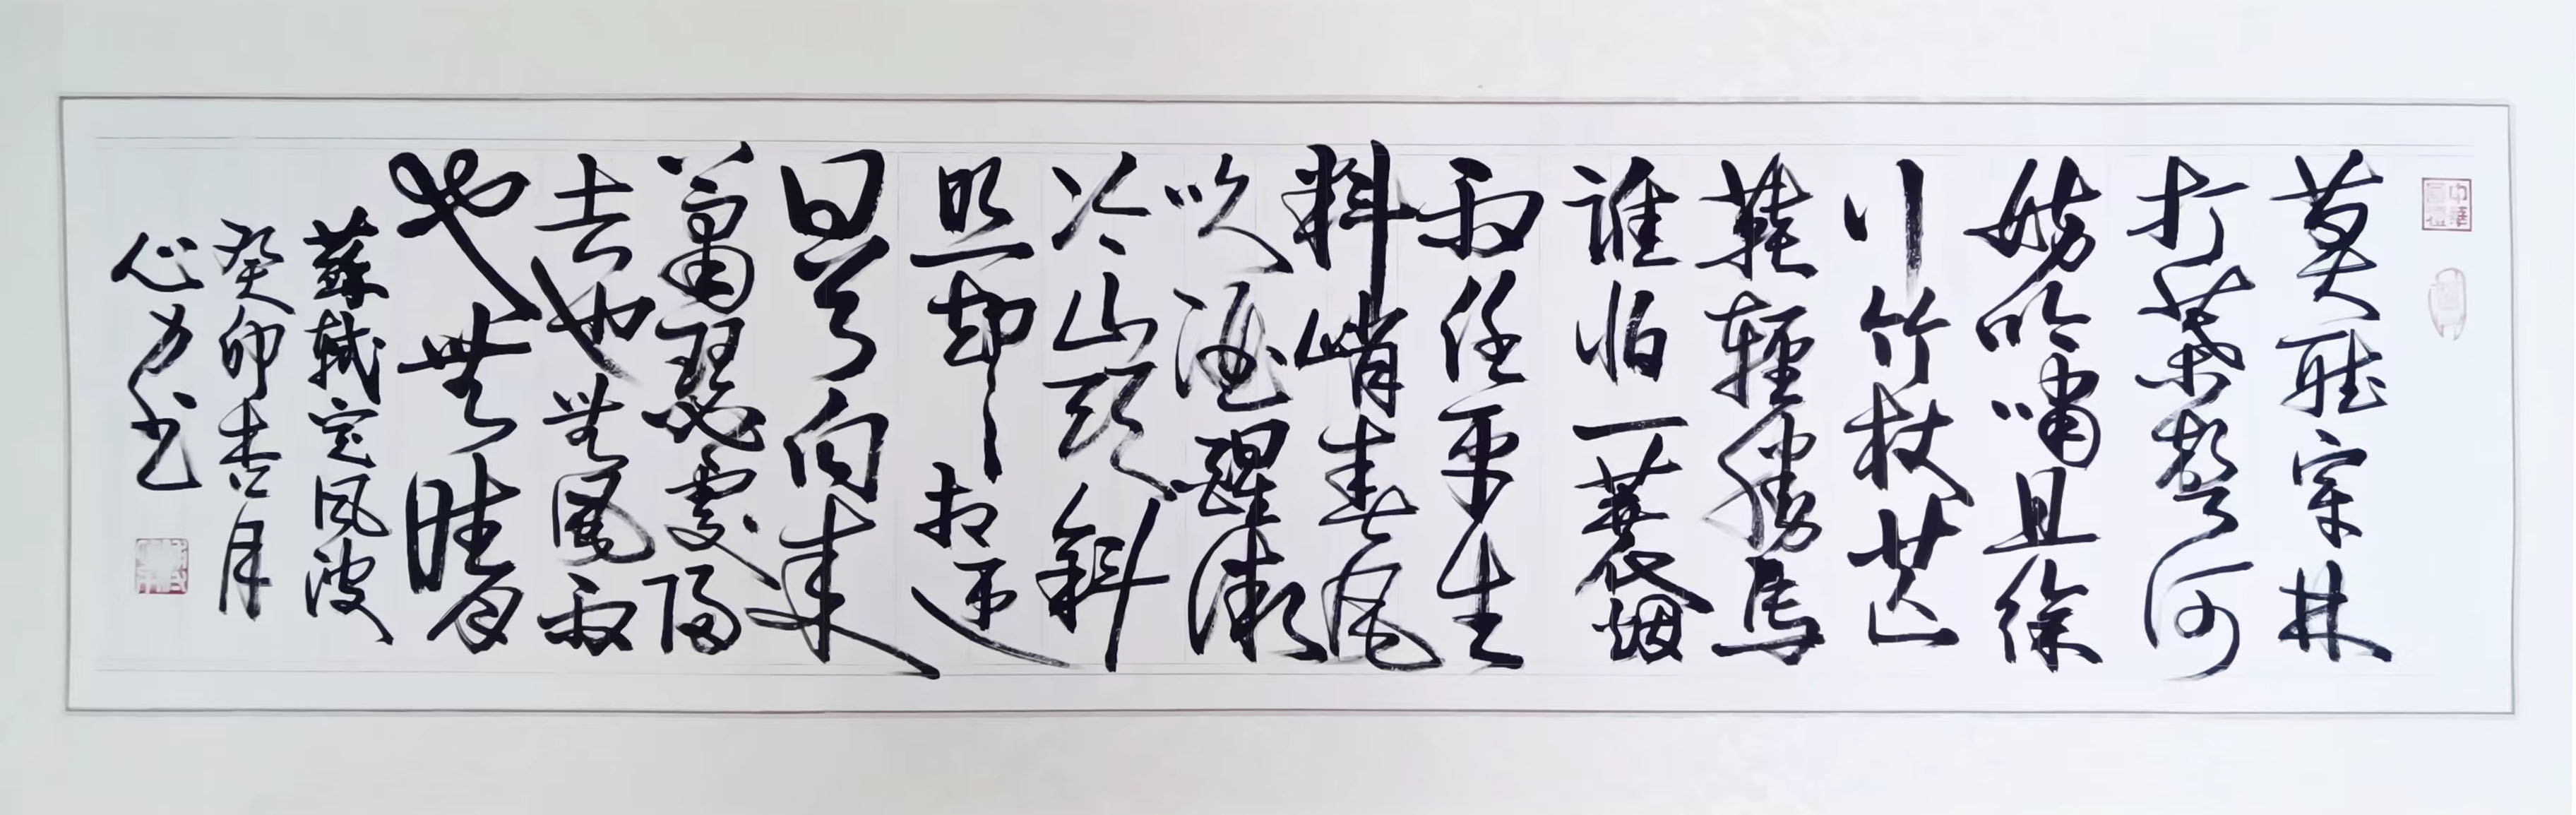 莫聽穿林
打葉聲何
妨吟嘯且徐
行竹杖芒
鞋輕勝馬
誰怕一蓑烟
雨任平生
料峭春風
吹酒醒微
冷山頭斜
照却相迎
回首向来
蕭瑟處歸
去也無風雨
也無晴
蘇軾定風波
癸卯杏月
心力书